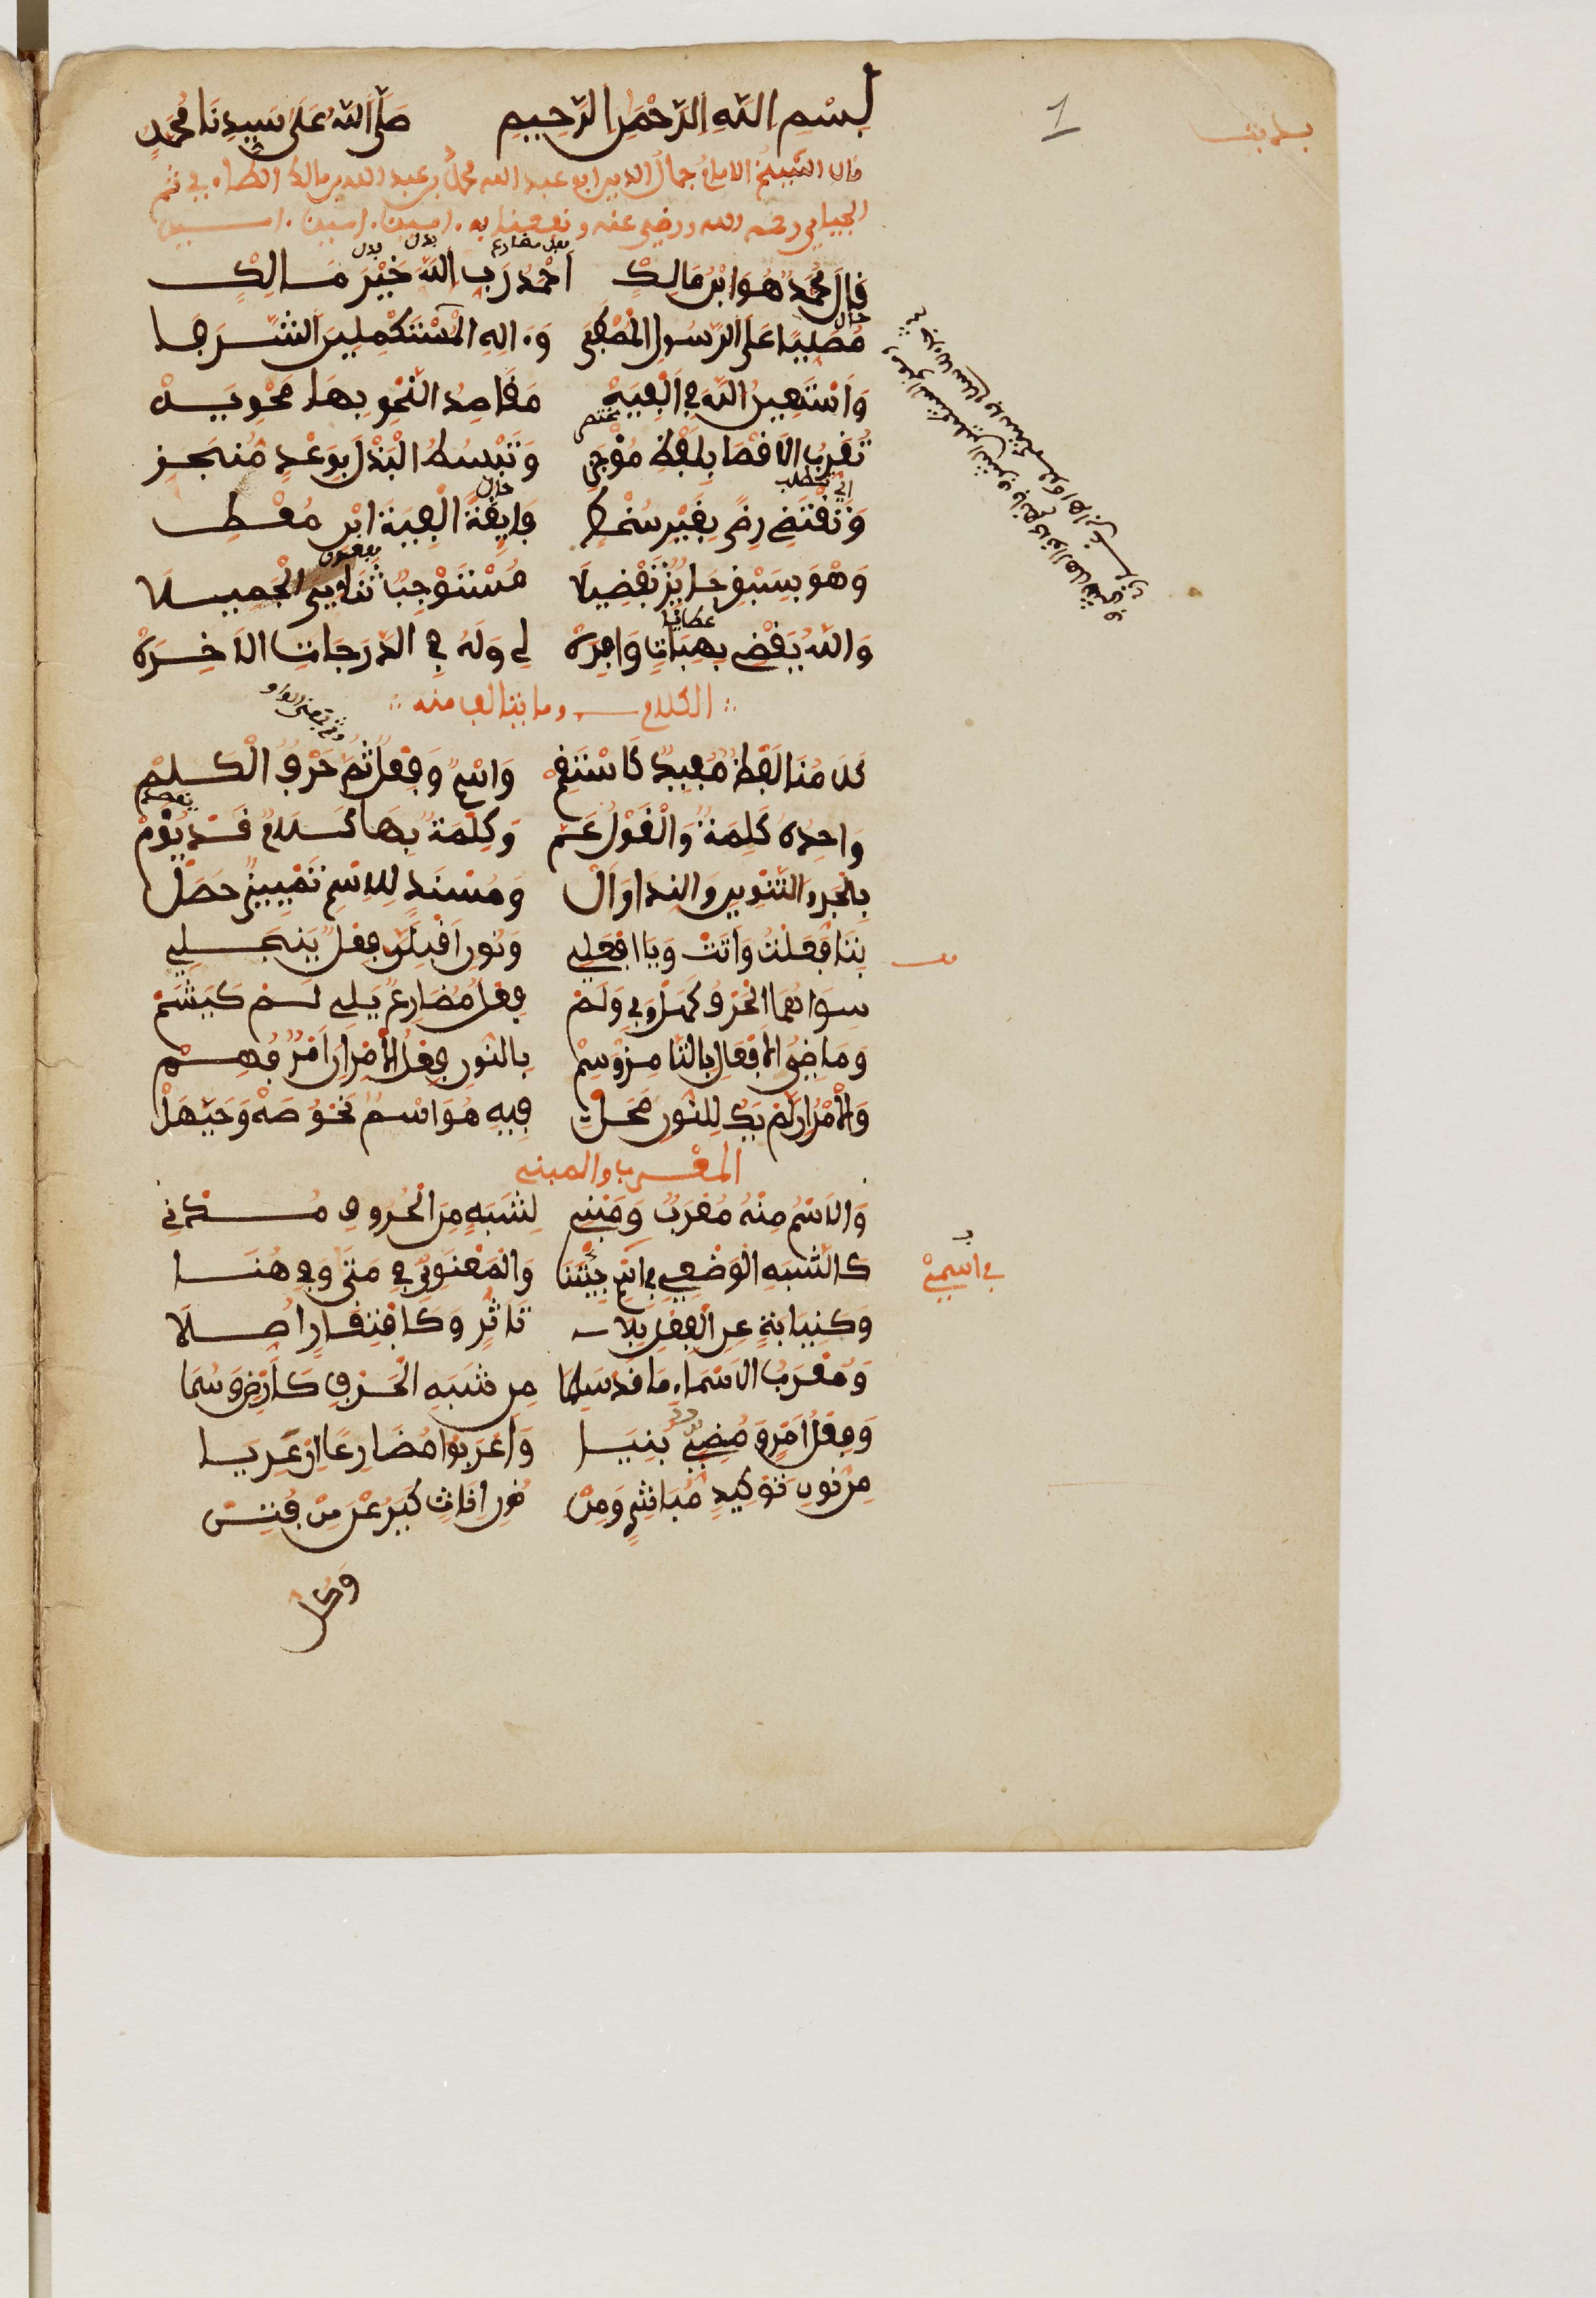 بسْمِ اللّهِ الرَّحْمَنِ الرَّحِيمِ صَلَّى اللّهُ عَلَى سَيِّدِنَا مُحَمَّدٍ
قال الشيخُ الامامُ جمالُ الدين ابو عبد الله محمدُ بن عبد الله بن مالك الطاءي ثم
الجياني رحمه الله ورضي عنه ونفعنا به . امين . امين . امين
فعل مضارع بدل بدل
قَالَ مُحَمَّدٌ هُوَ ابْنُ مَالِكِ أَحْمَدُ رَبِّي اللَّهَ خَيْرَ مَالِكِ
حال
مُصَلِّيًا عَلَى الرَّسُولِ الْمُصْطَفَى وَءَالِهِ الْمُسْتَكْمِلِينَ الشَّرَفَا
وَأَسْتَعِينُ اللَّهَ فِي أَلْفِيَّهْ مَقَاصِدُ النَّحْوِ بِهَا مَحْوِيَّهْ
تُقَرِّبُ الْأَقْصَى بِلَفْظٍ مُوجَزِ وَتَبْسُطُ الْبَذْلَ بِوَعْدٍ مُنْجَزِ
اي تطلب حال
وَتَقْتَضِي رِضًى بِغَيْرِ سُخْطِ فَائِقَةً أَلْفِيَّةَ ابْنِ مُعْطِ
مفعول
وَهْوَ بِسَبْقٍ حَائِزٌ تَفْضِيلَا مُسْتَوْجِبٌ ثَنَائِيَ الْجَمِيلَا
عطايا
وَاللَّهُ يَقْضِي بِهِبَاتٍ وَافِرَهْ لِي وَلَهُ فِي الدَّرَجَاتِ الْآخِرَهْ
الكلام وما يتالف منه
وثم بمعنى الواو
كَلَامُنَا لَفْظٌ مُفِيدٌ كَاسْتَقِمْ وَاسْمٌ وَفِعْلٌ ثُمَّ حَرْفٌ الْكَلِمْ
يقصد
وَاحِدُهُ كَلِمَةٌ وَالْقَوْلُ عَمّ وَكِلْمَةٌ بِهَا كَلَامٌ قَدْ يُؤَمّْ
بِالْجَرِّ وَالتَّنْوِينِ وَالنِّدَا وَالْ وَمُسْنَدٍ لِلِاسْمِ تَمْيِيزٌ حَصَلْ
بِتَا فَعَلْتُ وَأَتَتْ وَيَا افْعَلِي وَنُونِ أَقْبِلَنَّ فِعْلٌ يَنْجَلِي
سِوَاهُمَا الْحَرْفُ كَهَلْ وَفِي وَلَمْ فِعْلٌ مُضَارِعٌ يَلِي لَمْ كَيَشَمْ
وَمَاضِيَ الْأَفْعَالِ بِالتَّا مِزْ وَسِمْ بِالنُّونِ فِعْلَ الْأَمْرِ إِنْ أَمْرٌ فُهِمْ
وَالْأَمْرُ إِنْ لَمْ يَكُ لِلنُّونِ مَحَلّْ فِيهِ هُوَ اسْمٌ نَحْوُ صَهْ وَحَيَّهَلْ
المعرب والمبني
وَالِاسْمُ مِنْهُ مُعْرَبٌ وَمَبْنِي لِشَبَهٍ مِنَ الْحُرُوفِ مُدْنِي
كَالشَّبَهِ الْوَضْعِيِّ فِي اسْمِ جِئْتَنَا وَالْمَعْنَوِيِّ فِي مَتَى وَفِي هُنَا
في اسمي
وَكَنِيَابَةٍ عَنِ الْفِعْلِ بِلَا تَأَثُّرٍ وَكَافْتِقَارٍ أُصِّلَا
وَمُعْرَبُ الْأَسْمَاءِ مَا قَدْ سَلِمَا مِنْ شَبَهِ الْحَرْفِ كَأَرْضٍ وَسُمَا
وَفِعْلُ أَمْرٍ وَمُضِيٍّ بُنِيَا وَأَعْرَبُوا مُضَارِعًا إِنْ عَرِيَا
مِنْ نُونِ تَوْكِيدٍ مُبَاشِرٍ وَمِنْ نُونِ إِنَاثٍ كَيَرُعْنَ مَنْ فُتِنْ
وَكُل
1